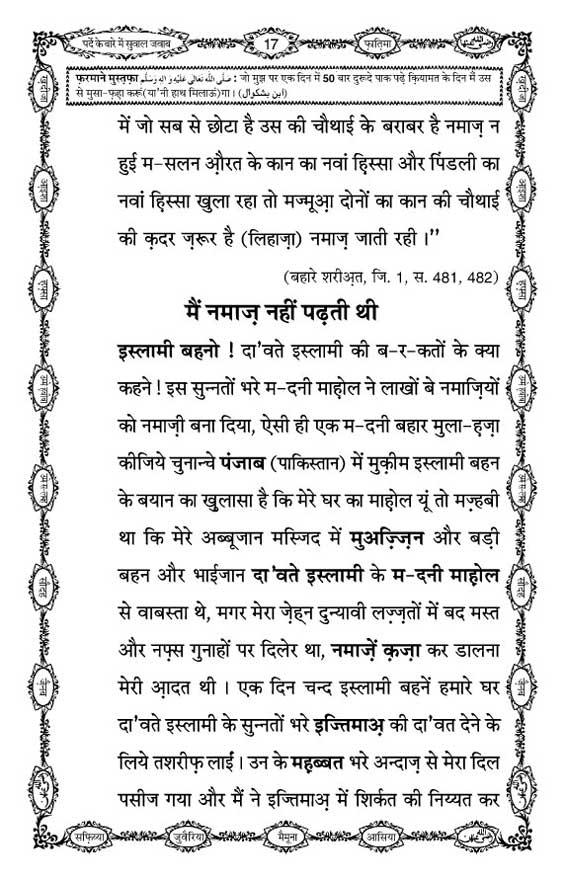 पर्दे के बारे में सुवाल जवाब
17
फ़ातिमा
फ़रमाने मुस्तफ़ा صَلَّى اللهُ تَعَالٰى عَلَيْهِ وَاٰلِهٖ وَسَلَّم : जो मुझ पर एक दिन में 50 बार दुरूदे पाक पढ़े क़ियामत के दिन मैं उस
से मुसा-फ़हा करूं(या'नी हाथ मिलाऊं)गा। (ابن بشکوال)
में जो सब से छोटा है उस की चौथाई के बराबर है नमाज़ न
हुई म-सलन औ़रत के कान का नवां हिस्सा और पिंडली का
नवां हिस्सा खुला रहा तो मज्मूआ़ दोनों का कान की चौथाई
की क़दर ज़रूर है (लिहाज़ा) नमाज़ जाती रही ।”
(बहारे शरीअ़त, जि. 1, स. 481, 482)
मैं नमाज़ नहीं पढ़ती थी
इस्लामी बहनो ! दा'वते इस्लामी की ब-र-कतों के क्या
कहने ! इस सुन्नतों भरे म-दनी माहोल ने लाखों बे नमाज़ियों
को नमाज़ी बना दिया, ऐसी ही एक म-दनी बहार मुला-हज़ा
कीजिये चुनान्चे पंजाब (पाकिस्तान) में मुक़ीम इस्लामी बहन
के बयान का खुलासा है कि मेरे घर का माहोल यूं तो मज़्हबी
था कि मेरे अब्बूजान मस्जिद में मुअज़्ज़िन और बड़ी
बहन और भाईजान दा'वते इस्लामी के म-दनी माह़ोल
से वाबस्ता थे, मगर मेरा ज़ेह्न दुन्यावी लज़्ज़तों में बद मस्त
और नफ़्स गुनाहों पर दिलेर था, नमाज़ें क़ज़ा कर डालना
मेरी आ़दत थी । एक दिन चन्द इस्लामी बहनें हमारे घर
दा'वते इस्लामी के सुन्नतों भरे इज्तिमाअ़ की दा'वत देने के
लिये तशरीफ़ लाईं। उन के महब्बत भरे अन्दाज़ से मेरा दिल
पसीज गया और मैं ने इज्तिमाअ़ में शिर्कत की निय्यत कर
सफ़िय्या
जुवैरिया
मैमूना
आसिया